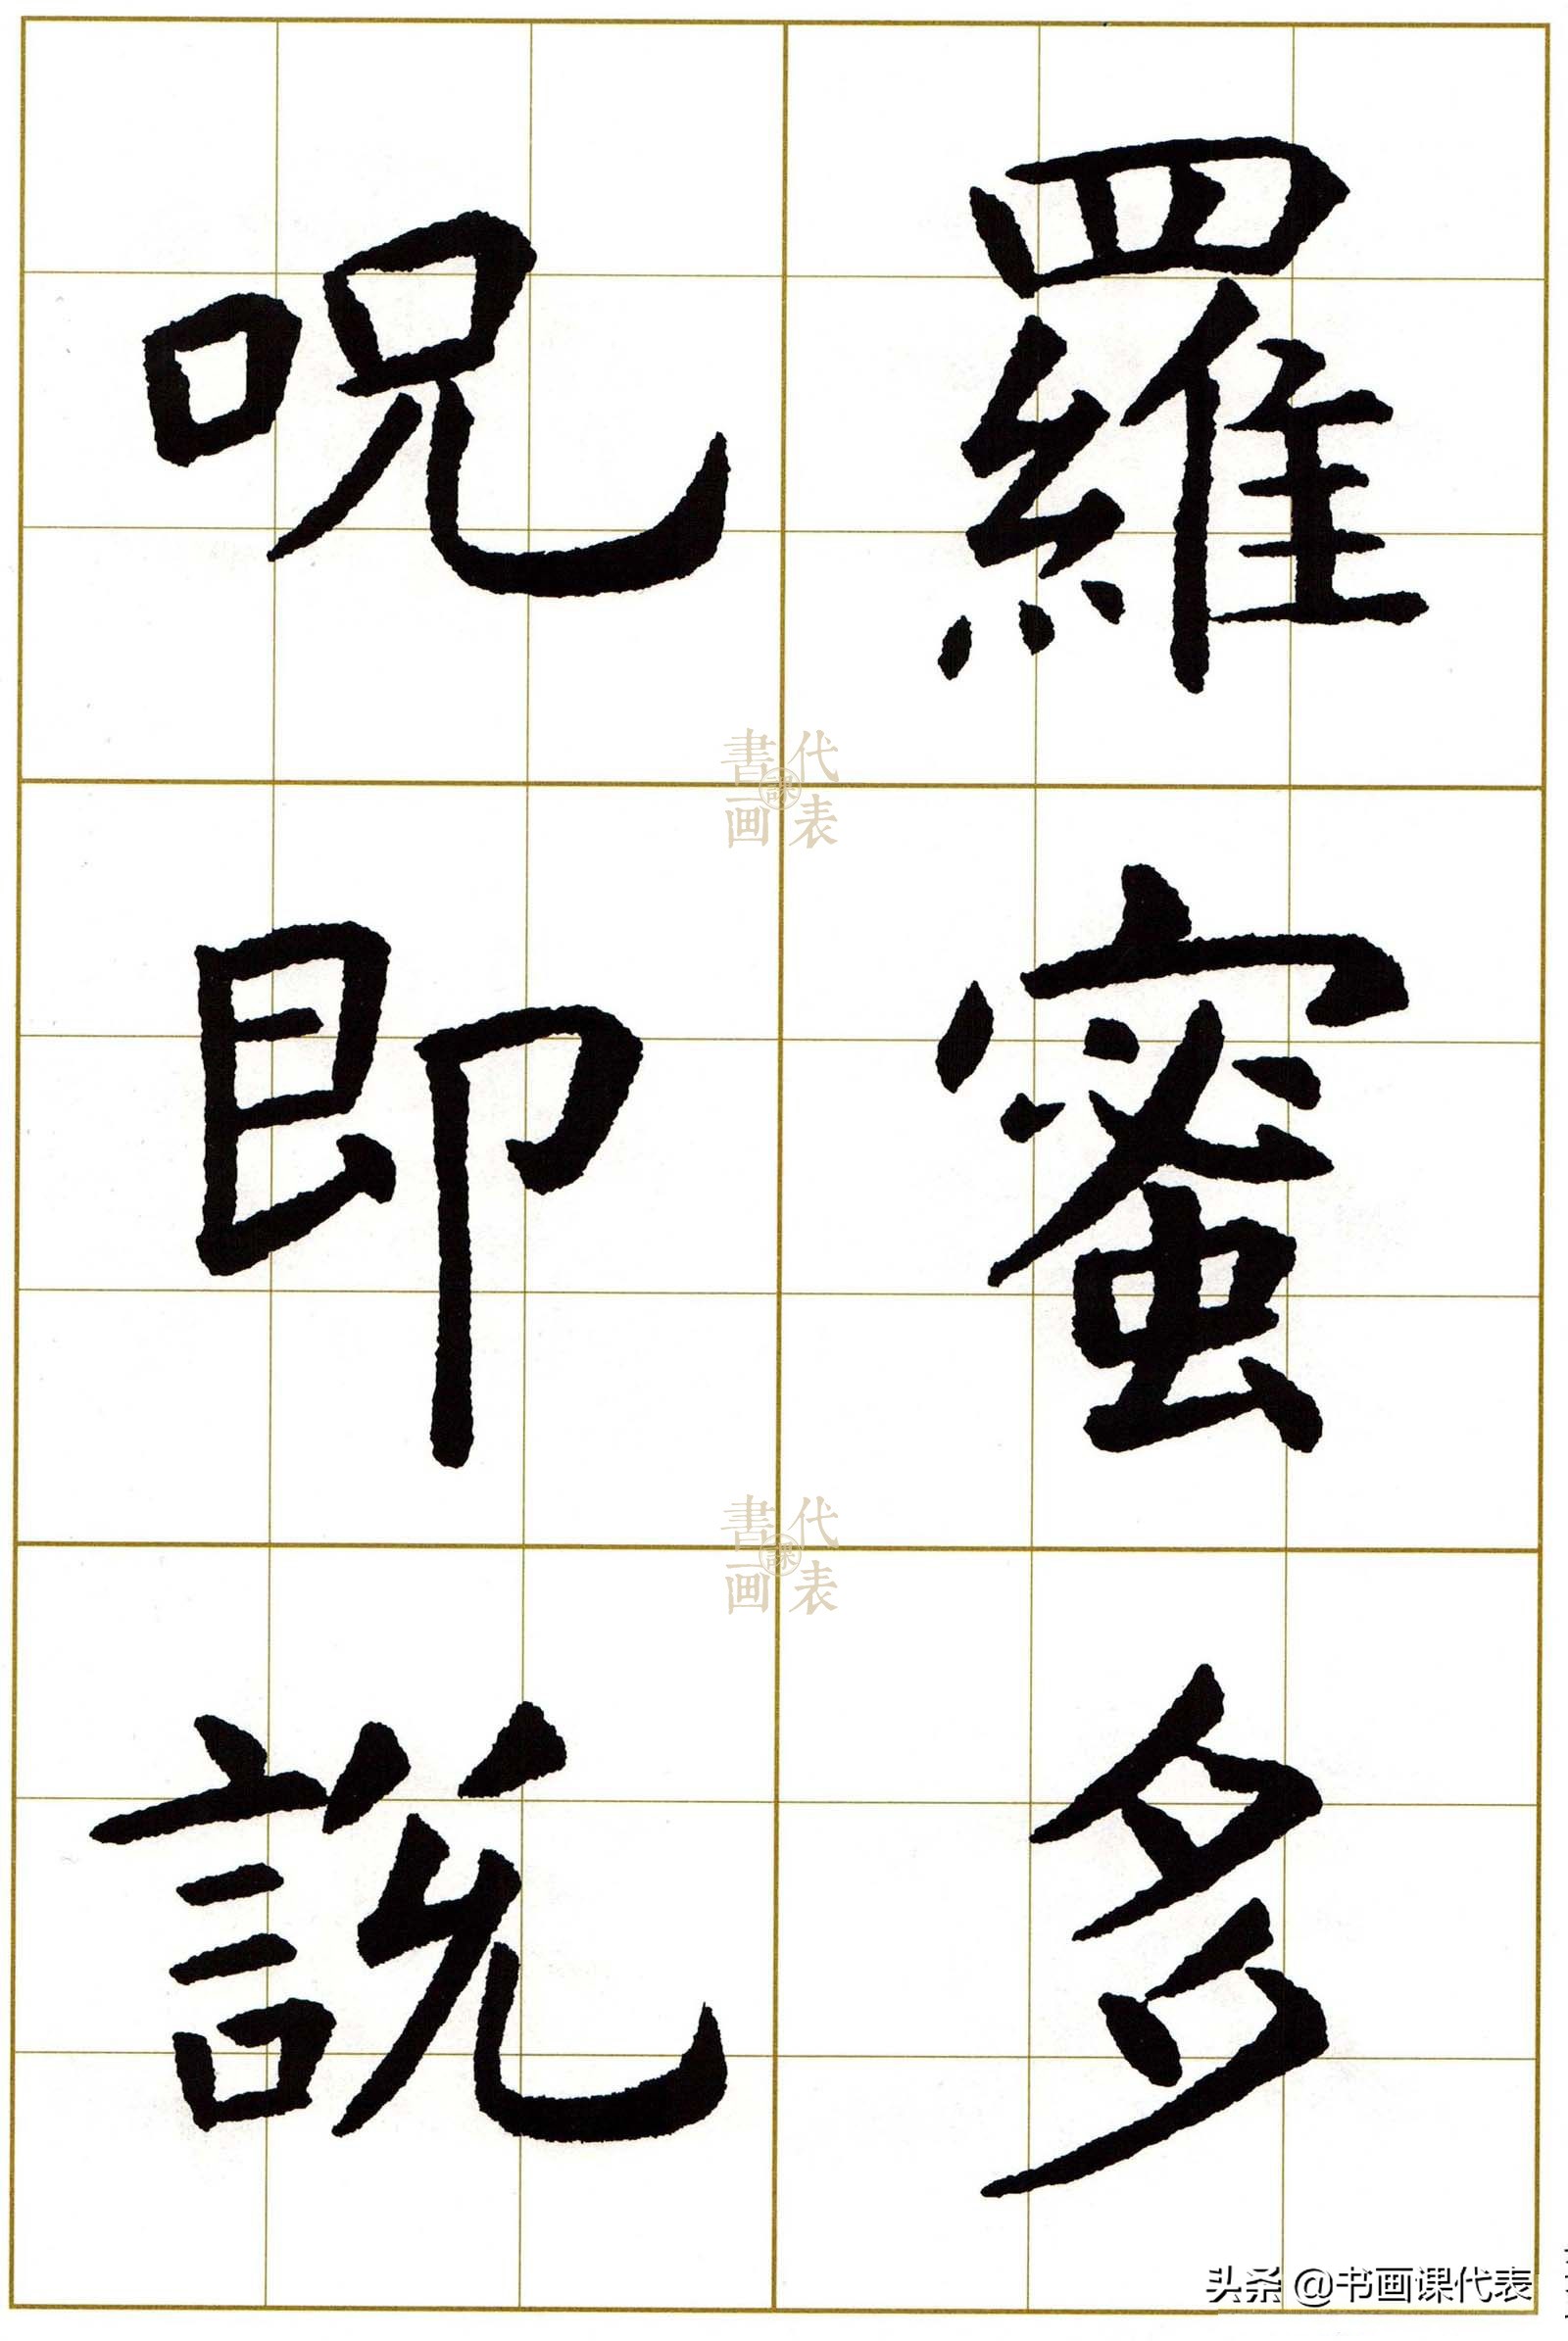 羅蜜多
呪即説
書画課代表
書画課代表
头条 @书画课代表